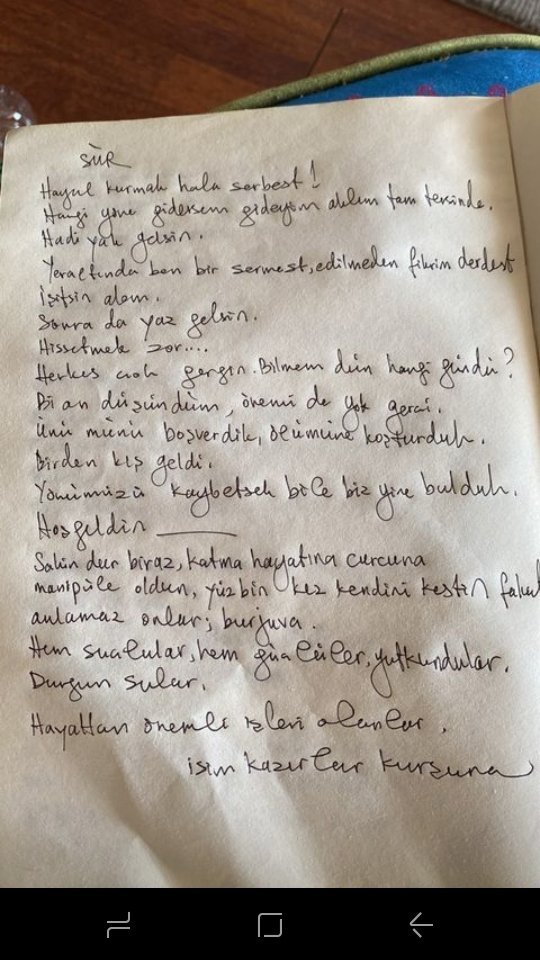 SÜR
Hayal kurmak hala serbest!
Hangi yöne gidersem gideyim aklım tam tersinde.
Hadi yak gelsin.
Yeraltında ben bir sermest, edilmeden fikrim derdest
İşitsin alem.
Sonra da yaz gelsin.
Hissetmek zor....
Herkes çok gergin. Bilmem dün hangi gündü?
Bi an düşündüm, önemi de yok gerçi.
Ünü münü boşverdik, ölümüne koşturduk.
Birden kış geldi.
Yönümüzü kaybetsek bile biz yine bulduk.
Hoşgeldin
Sakin dur biraz, katma hayatına curcuna
manipüle oldun, yüzbin kez kendini kestin fakat
anlamaz onlar; burjuva.
Hem suçlular, hem güçlüler, yutkundular.
Durgun sular.
Hayattan önemli işleri olanlar.
isim kazırlar kurşuna